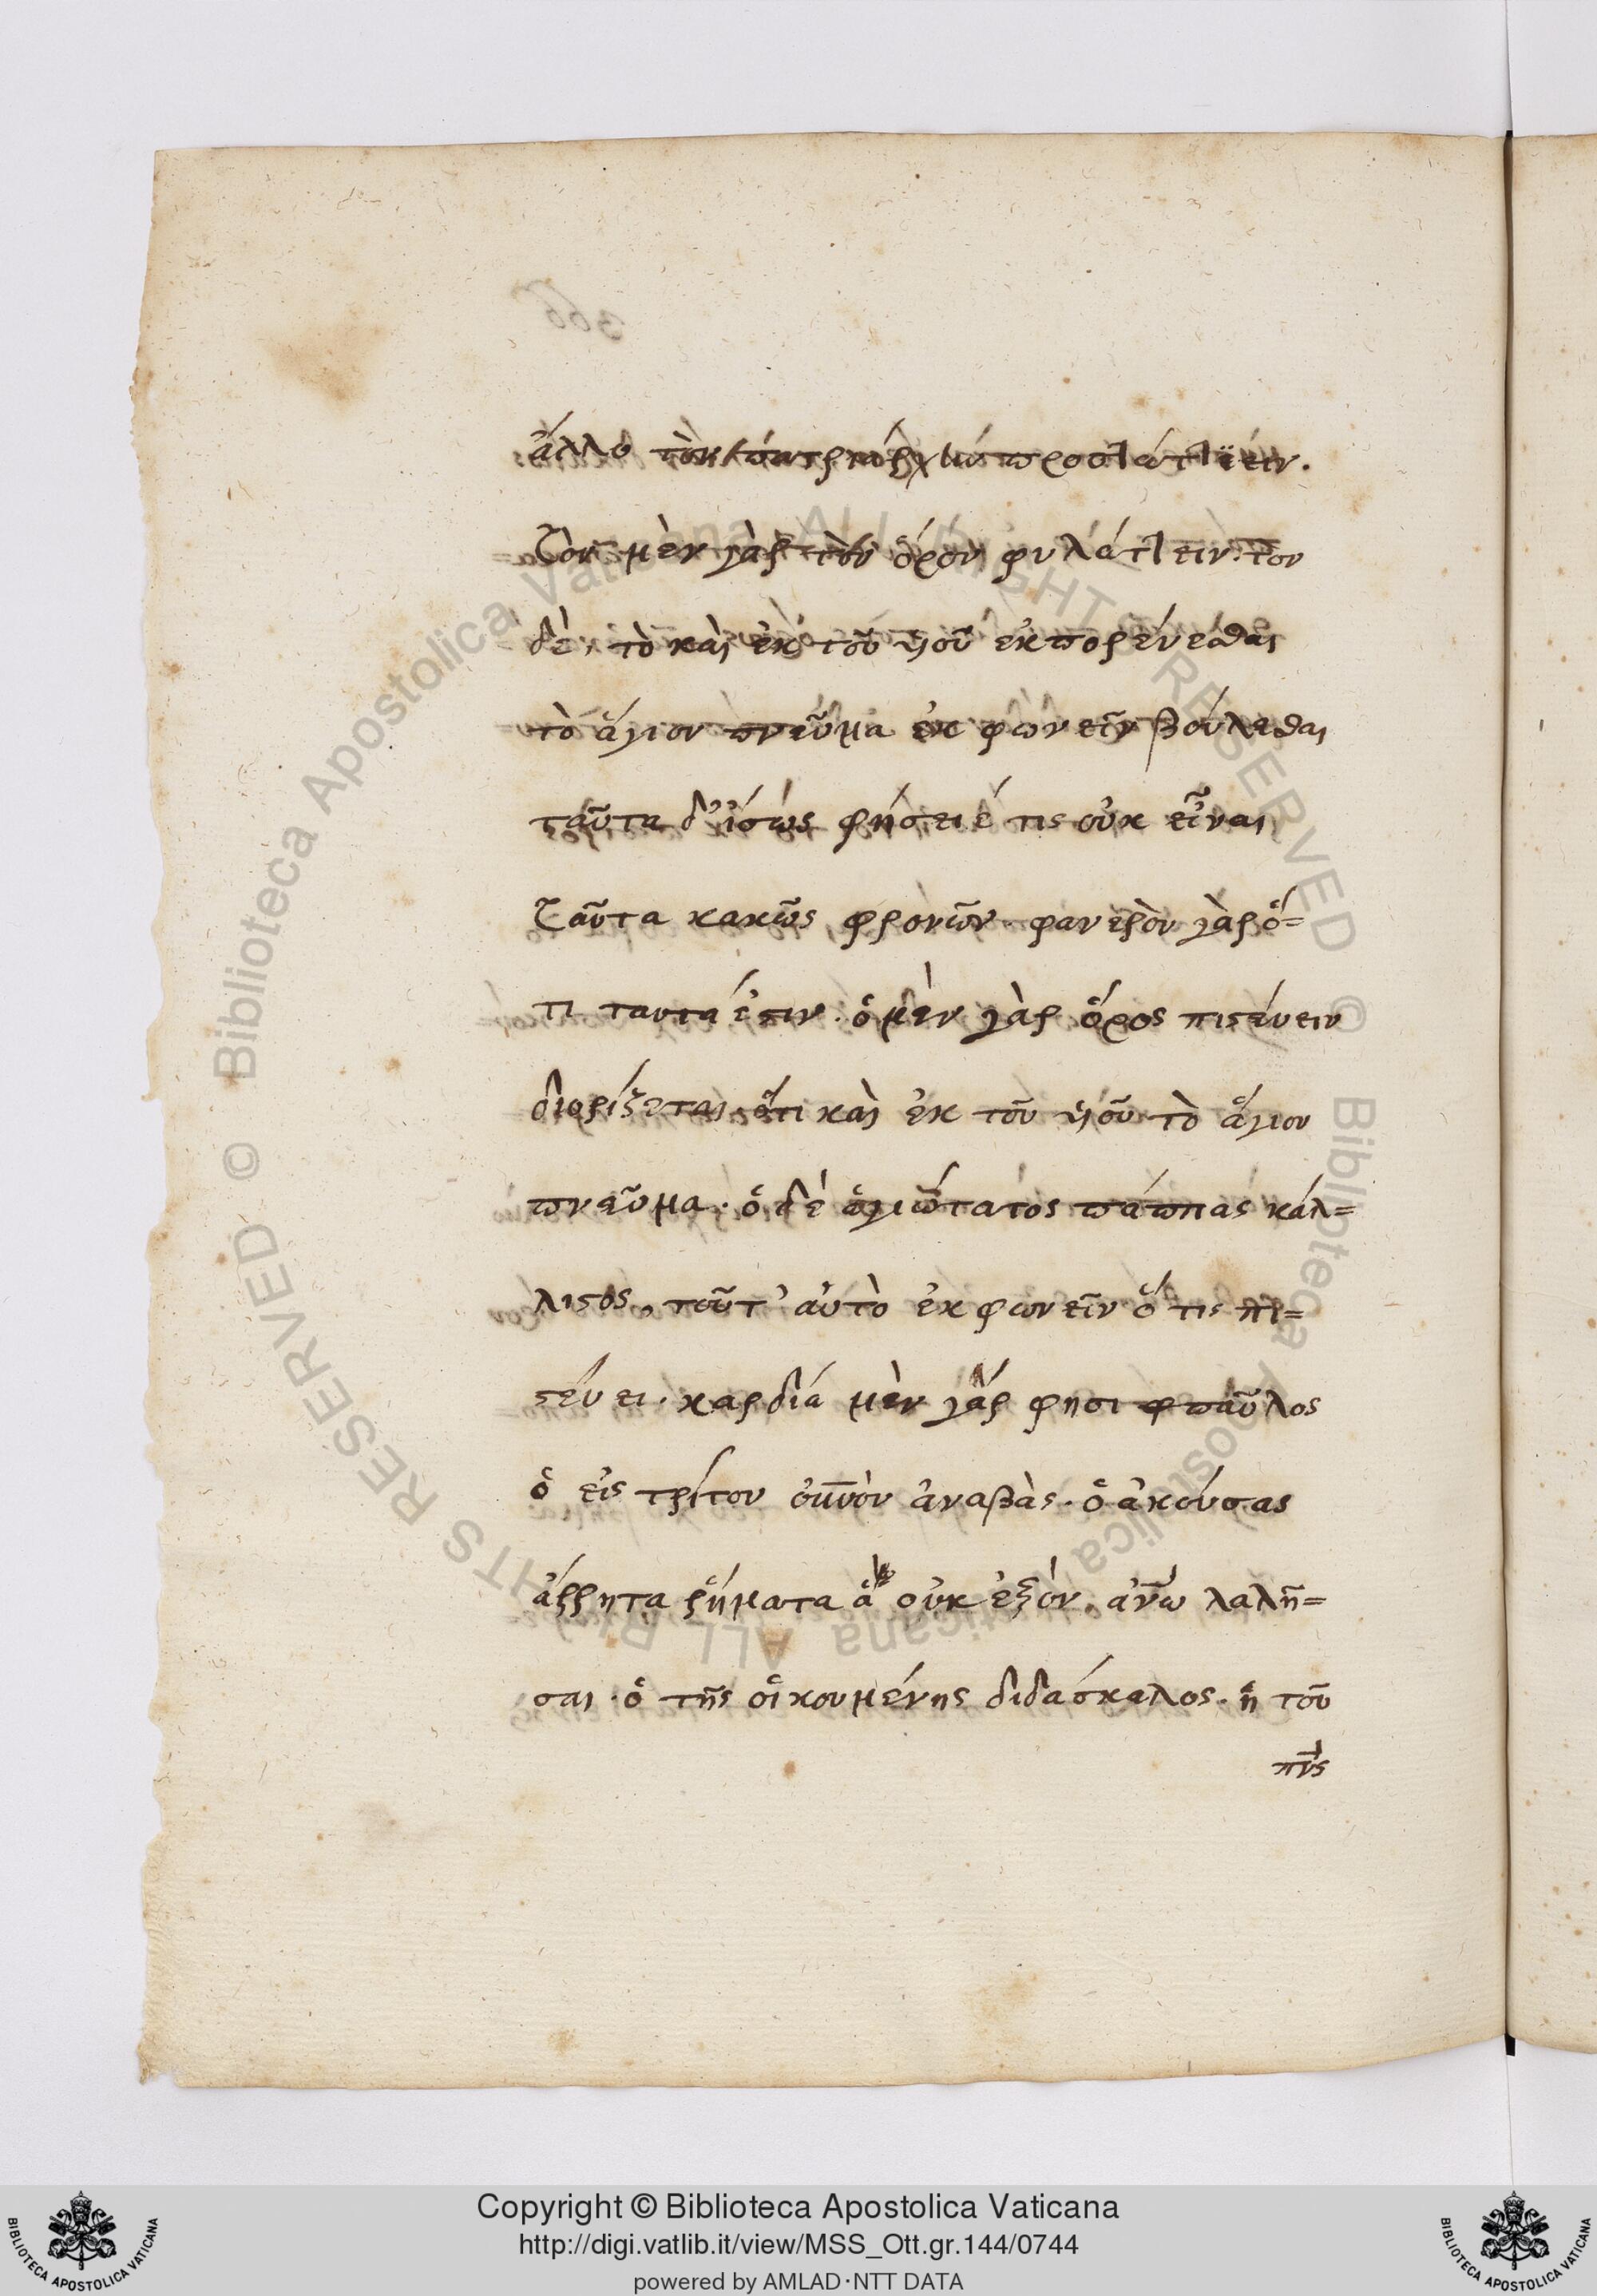 ἄλλο τὸν πατριάρχην προστάττειν.
τὸν μὲν γὰρ τὸν ὅρον φυλάττειν. τὸν
δὲ, τὸ καὶ ἐκ τοῦ ὑιοῦ ἐκπορεύεσθαι
τὸ ἅγιον πνεῦμα ἐκφωνεῖν βούλεσθαι
ταῦτα δ' ἴσως φήσειέ τις οὐκ εἶναι
ταῦτα κακῶς φρονῶν. φανερὸν γὰρ ὅ=
τι ταυτά ἐστιν. ὁ μὲν γὰρ ὅρος πιστεύειν
διορίζεται. ὅτι καὶ ἐκ τοῦ ὑιοῦ τὸ ἅγιον
πνεῦμα. ὁ δὲ ἁγιώτατος πάππας κάλ=
λιστος, τοῦτ' αὐτὸ ἐκφωνεῖν ὅ τις πι=
στεύει. καρδία μὲν γάρ φησι παῦλος
ὁ εἰς τρίτον οὐνὸν ἀναβὰς. ὁ ἀκούσας
ἄρρητα ῥήματα ἃ οὐκ ἐξὸν ἀνω λαλῆ=
σαι. ὁ τῆς οἰκουμένης διδάσκαλος. ἡ τοῦ
πνς
366
Copyright © Biblioteca Apostolica Vaticana
http://digi.vatlib.it/view/MSS_Ott.gr.144/0744
powered by AMLAD·NTT DATA
BIBLIOTECA APOSTOLICA VATICANA
BIBLIOTECA APOSTOLICA VATICANA
© Biblioteca Apostolica Vaticana ALL RIGHTS RESERVED
© Biblioteca Apostolica Vaticana ALL RIGHTS RESERVED